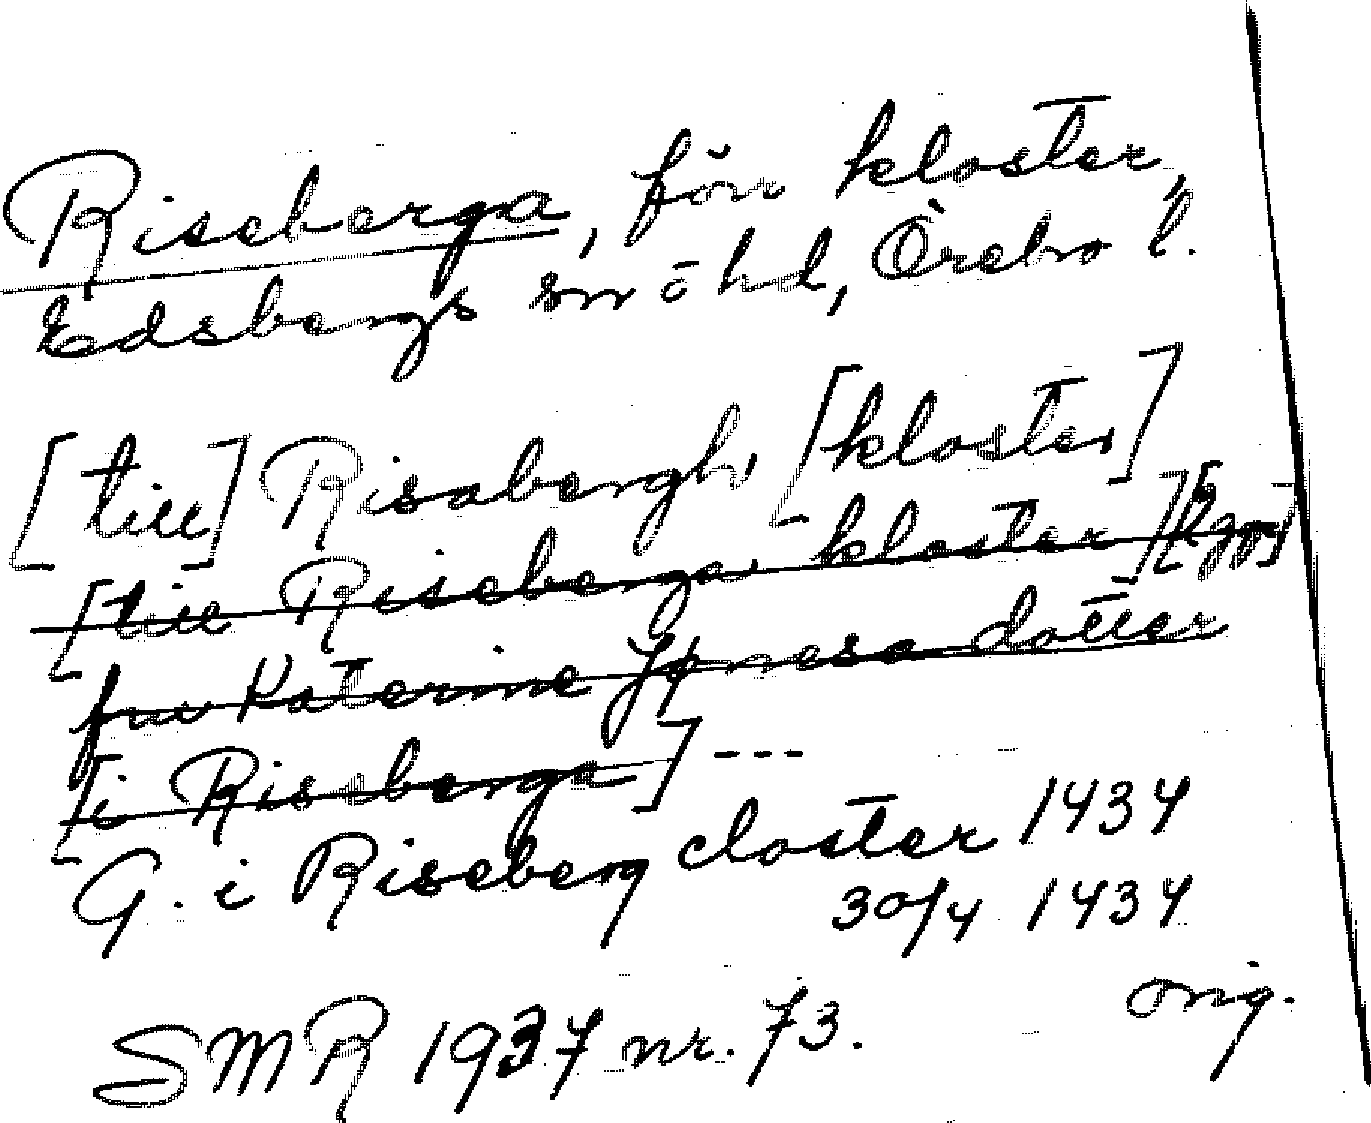 Riseberga, förr kloster,
Edsbergs sn ö hd, Örebro l.
[till] Risabergh [kloster]
[till Riseberga kloster]
fru Katerine Jonesa dotter
[i Riseberga] ---
G. i Riseberg closter 1434
30/4 1434
orig.
SMR 1937 nr. 73.